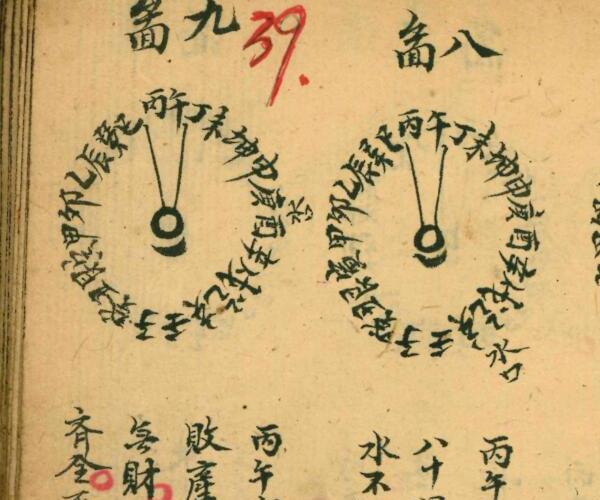 八啚
丙午丁未坤申庚酉辛戌乾亥壬子癸丑艮寅甲卯乙辰巽巳
水口
丙午
八十
水不
九啚
39.
丙午丁未坤申庚酉辛戌乾亥壬子癸丑艮寅甲卯乙辰巽巳
水口
丙午
敗產
無財
齊全